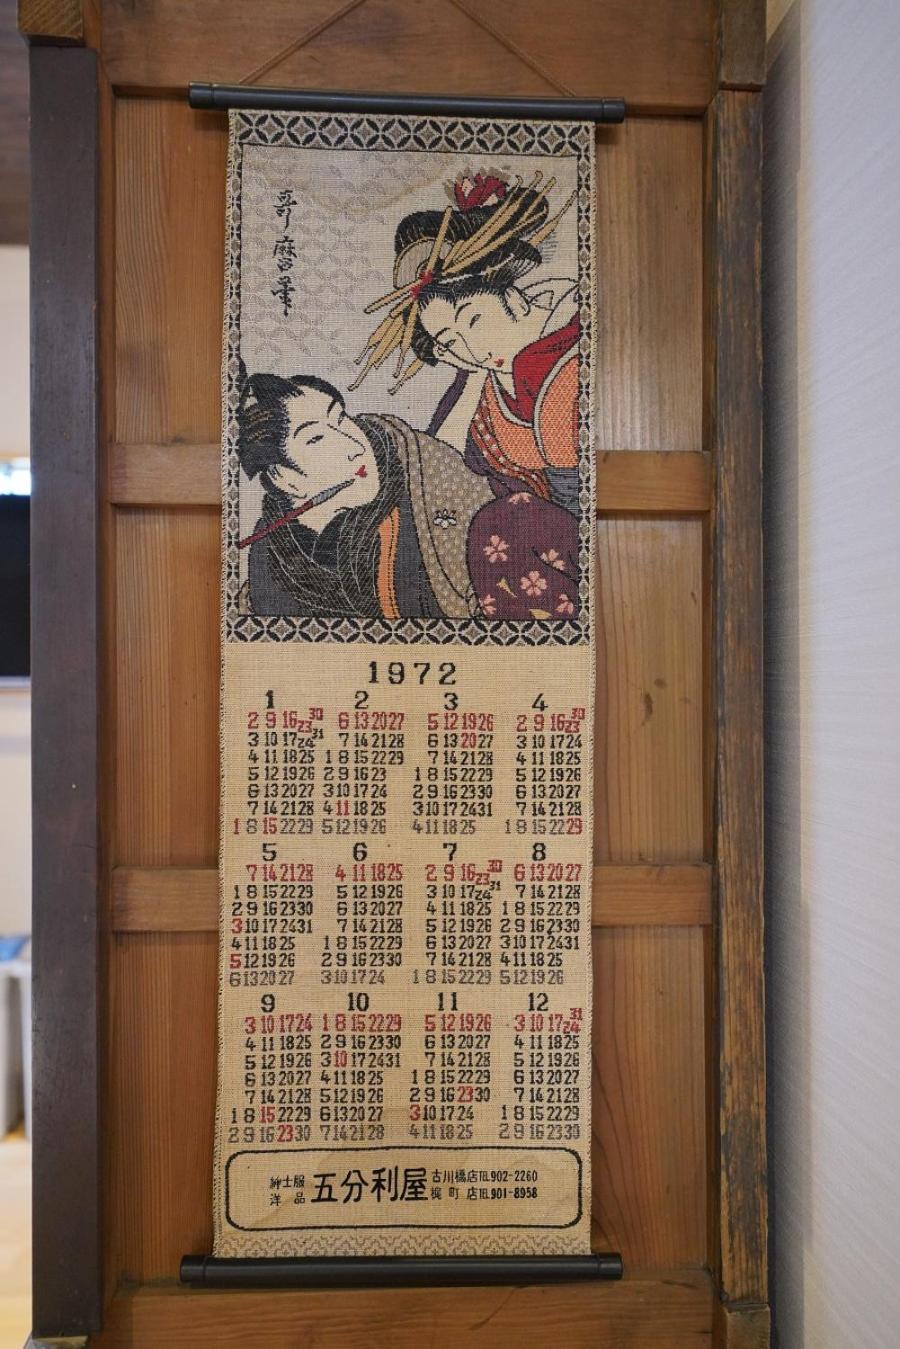 哥麿筆
1972
1 2 3 4
2 9 16 23 30 6 13 20 27 5 12 19 26 2 9 16 23 30
3 10 17 24 31 7 14 21 28 6 13 20 27 3 10 17 24
4 11 18 25 1 8 15 22 29 7 14 21 28 4 11 18 25
5 12 19 26 2 9 16 23 1 8 15 22 29 5 12 19 26
6 13 20 27 3 10 17 24 2 9 16 23 30 6 13 20 27
7 14 21 28 4 11 18 25 3 10 17 24 31 7 14 21 28
1 8 15 22 29 5 12 19 26 4 11 18 25 1 8 15 22 29
5 6 7 8
7 14 21 28 4 11 18 25 2 9 16 23 30 6 13 20 27
1 8 15 22 29 5 12 19 26 3 10 17 24 31 7 14 21 28
2 9 16 23 30 6 13 20 27 4 11 18 25 1 8 15 22 29
3 10 17 24 31 7 14 21 28 5 12 19 26 2 9 16 23 30
4 11 18 25 1 8 15 22 6 13 20 27 3 10 17 24 31
5 12 19 26 2 9 16 23 30 7 14 21 28 4 11 18 25
6 13 20 27 3 10 17 24 1 8 15 22 29 5 12 19 26
9 10 11 12
3 10 17 24 1 8 15 22 29 5 12 19 26 3 10 17 24 31
4 11 18 25 2 9 16 23 30 6 13 20 27 4 11 18 25
5 12 19 26 3 10 17 24 31 7 14 21 28 5 12 19 26
6 13 20 27 4 11 18 25 1 8 15 22 29 6 13 20 27
7 14 21 28 5 12 19 26 2 9 16 23 30 7 14 21 28
1 8 15 22 29 6 13 20 27 3 10 17 24 1 8 15 22 29
2 9 16 23 30 7 14 21 28 4 11 18 25 2 9 16 23 30
紳士服
洋品
五分利屋
古川橋店℡902-2260
柳町店℡901-8958